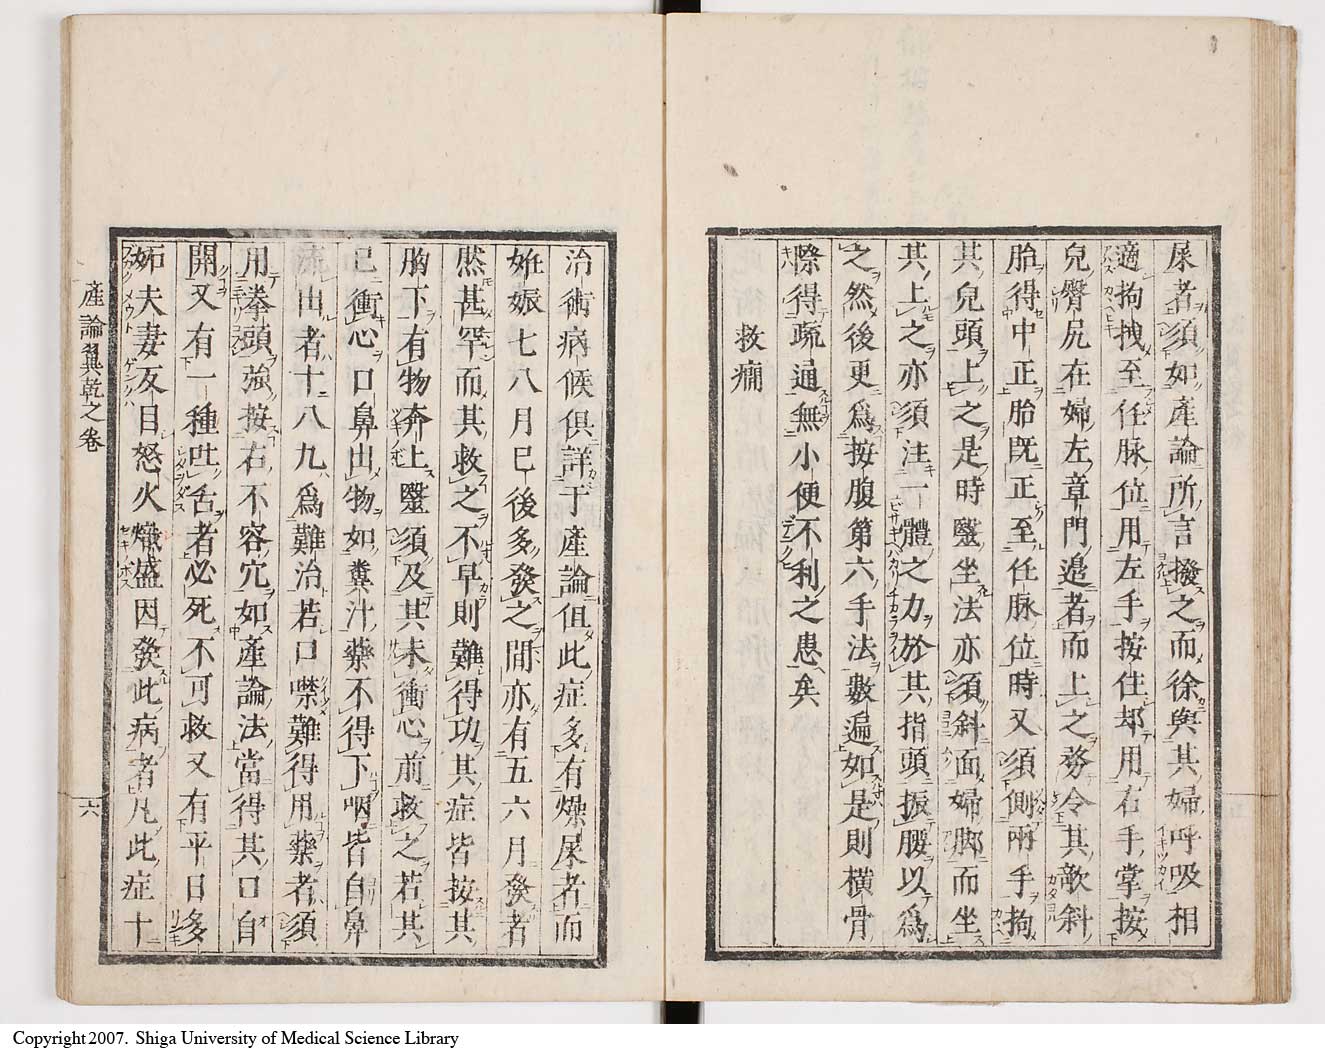 尿者須如產論所言撥之而徐與其婦呼吸相
適拘拽至任脉位用左手按住却用右手掌按
兒臀尻在婦左章門邊者而上之務令其敧斜
胎得中正胎既正至任脉位時又須側兩手拘
其兒頭上之是時毉坐法亦須斜面婦脚而坐
其上之亦須注一體之力於其指頭振腰以爲
之然後更爲按腹第六手法數遍如是則橫骨
際得疏通無小便不利之患矣
救癇
治術病候俱詳于產論但此症多有燥尿者而
妊娠七八月已後多發之間亦有五六月發者
然甚罕而其救之不早則難得功其症皆按其
胸下有物奔上毉須及其未衝心前救之若其
已衝心口鼻出物如糞汁藥不得下咽皆自鼻
流出者十八九爲難治若口噤難得用藥者須
用拳頭強按右不容穴如產論法當得其口自
開又有一種吐舌者必死不可救又有平日多
妬夫妻反目怒火熾盛因發此病者凡此症十
產論翼乾之卷
六
Copyright 2007. Shiga University of Medical Science Library